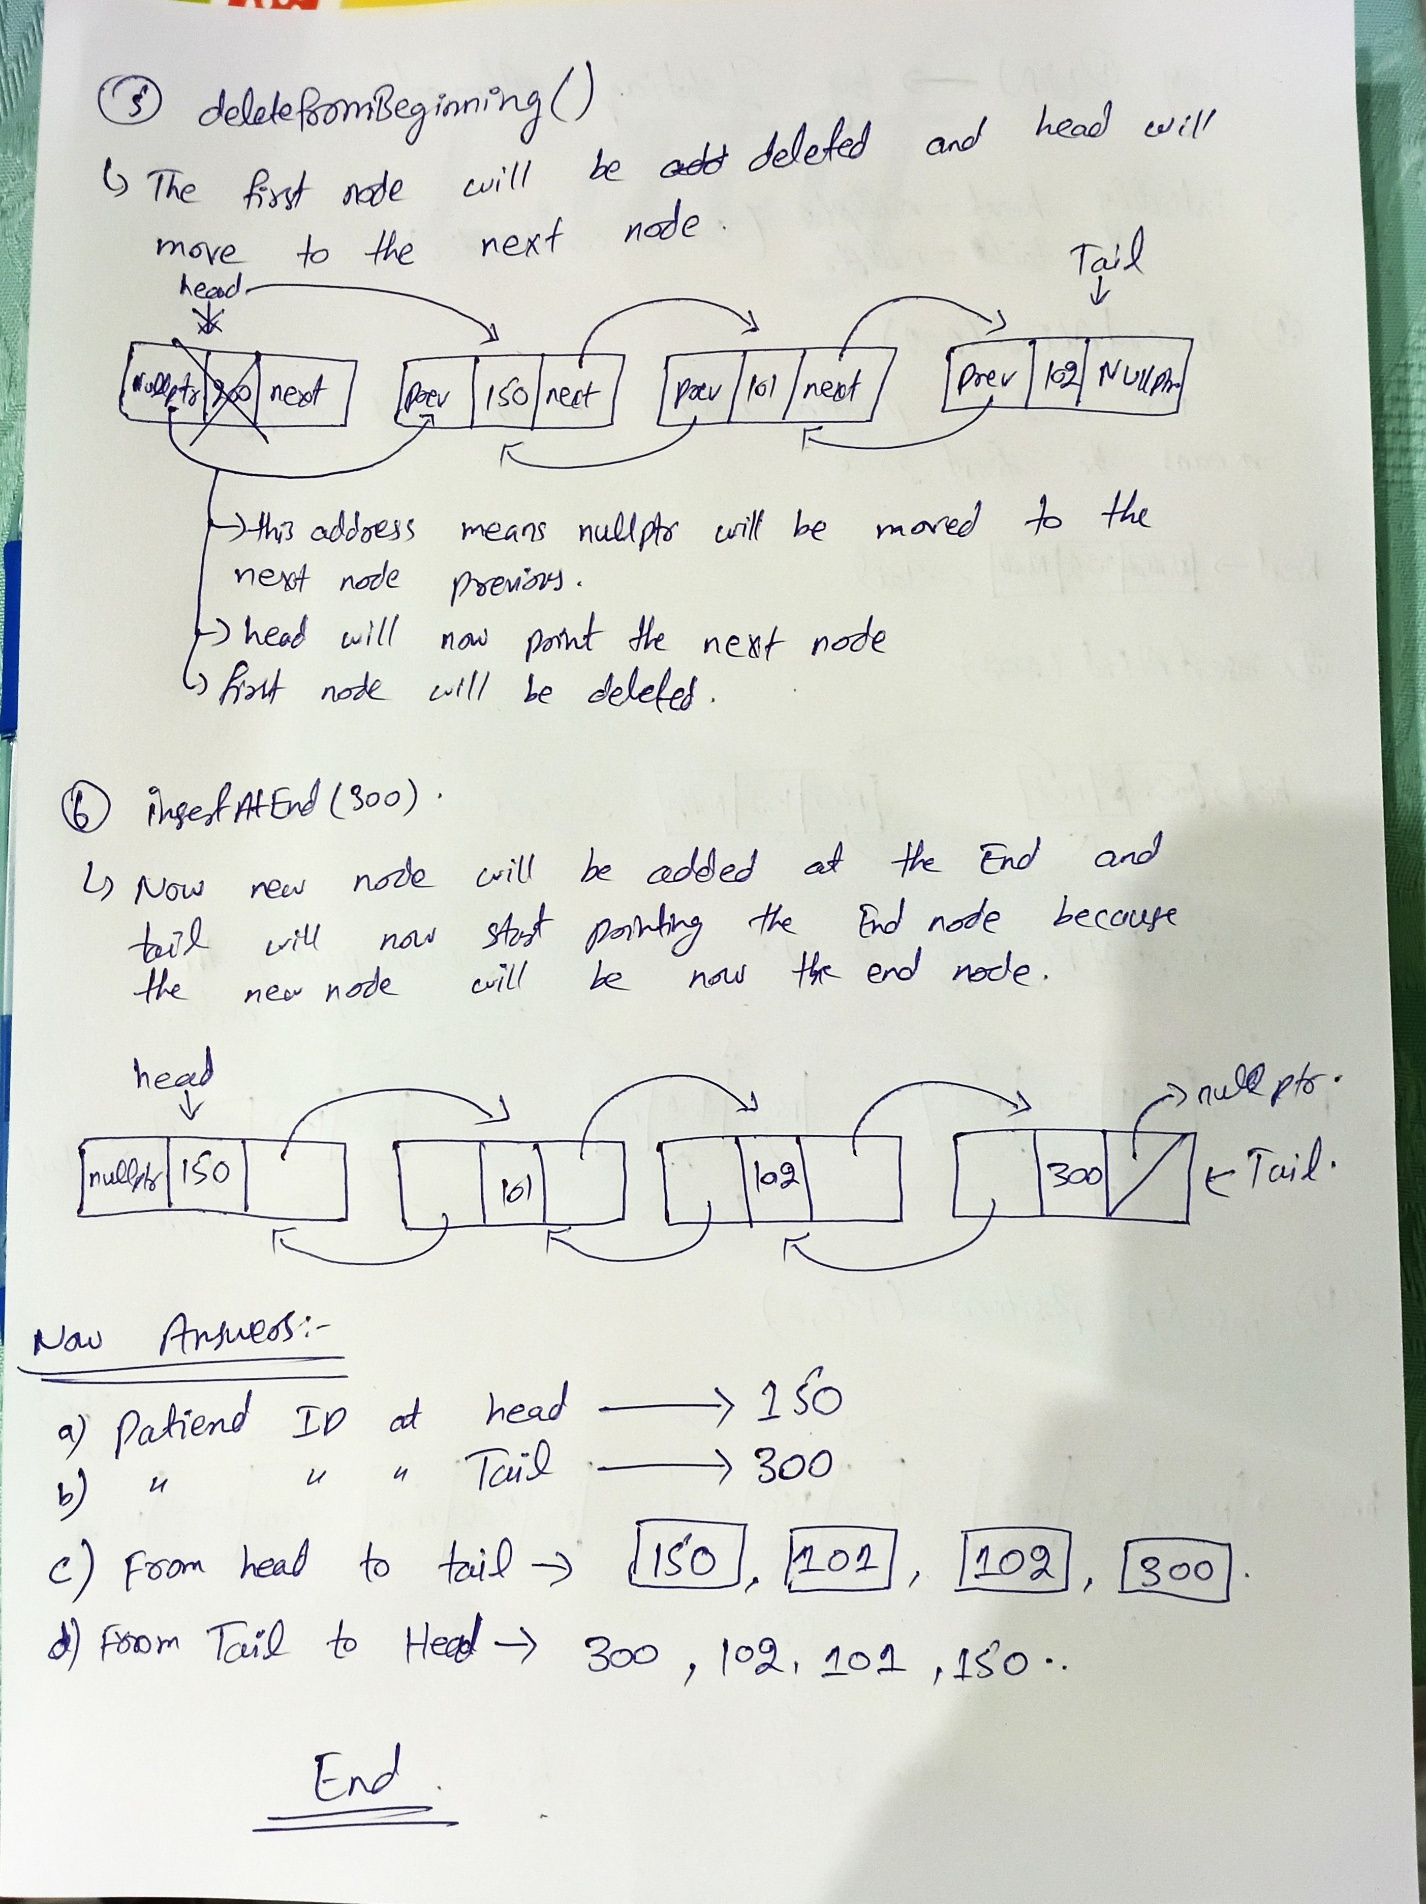 5 deletefromBeginning()
↳ The first node will be deleted and head will
move to the next node.
head Tail
nullptr 200 next prev 150 next prev 101 next prev 102 Nullptr
→ this address means nullptr will be moved to the
next node previous.
→ head will now point the next node
↳ first node will be deleted.
6 insertAtEnd (300).
↳ Now new node will be added at the End and
tail will now start pointing the End node because
the new node will be now the end node.
head → nullptr.
nullptr 150 101 102 300 ← Tail.
Now Answers:-
a) Patiend ID at head → 150
b) " " " Tail → 300
c) From head to tail → 150, 101, 102, 300.
d) From Tail to Head → 300, 102, 101, 150..
End.